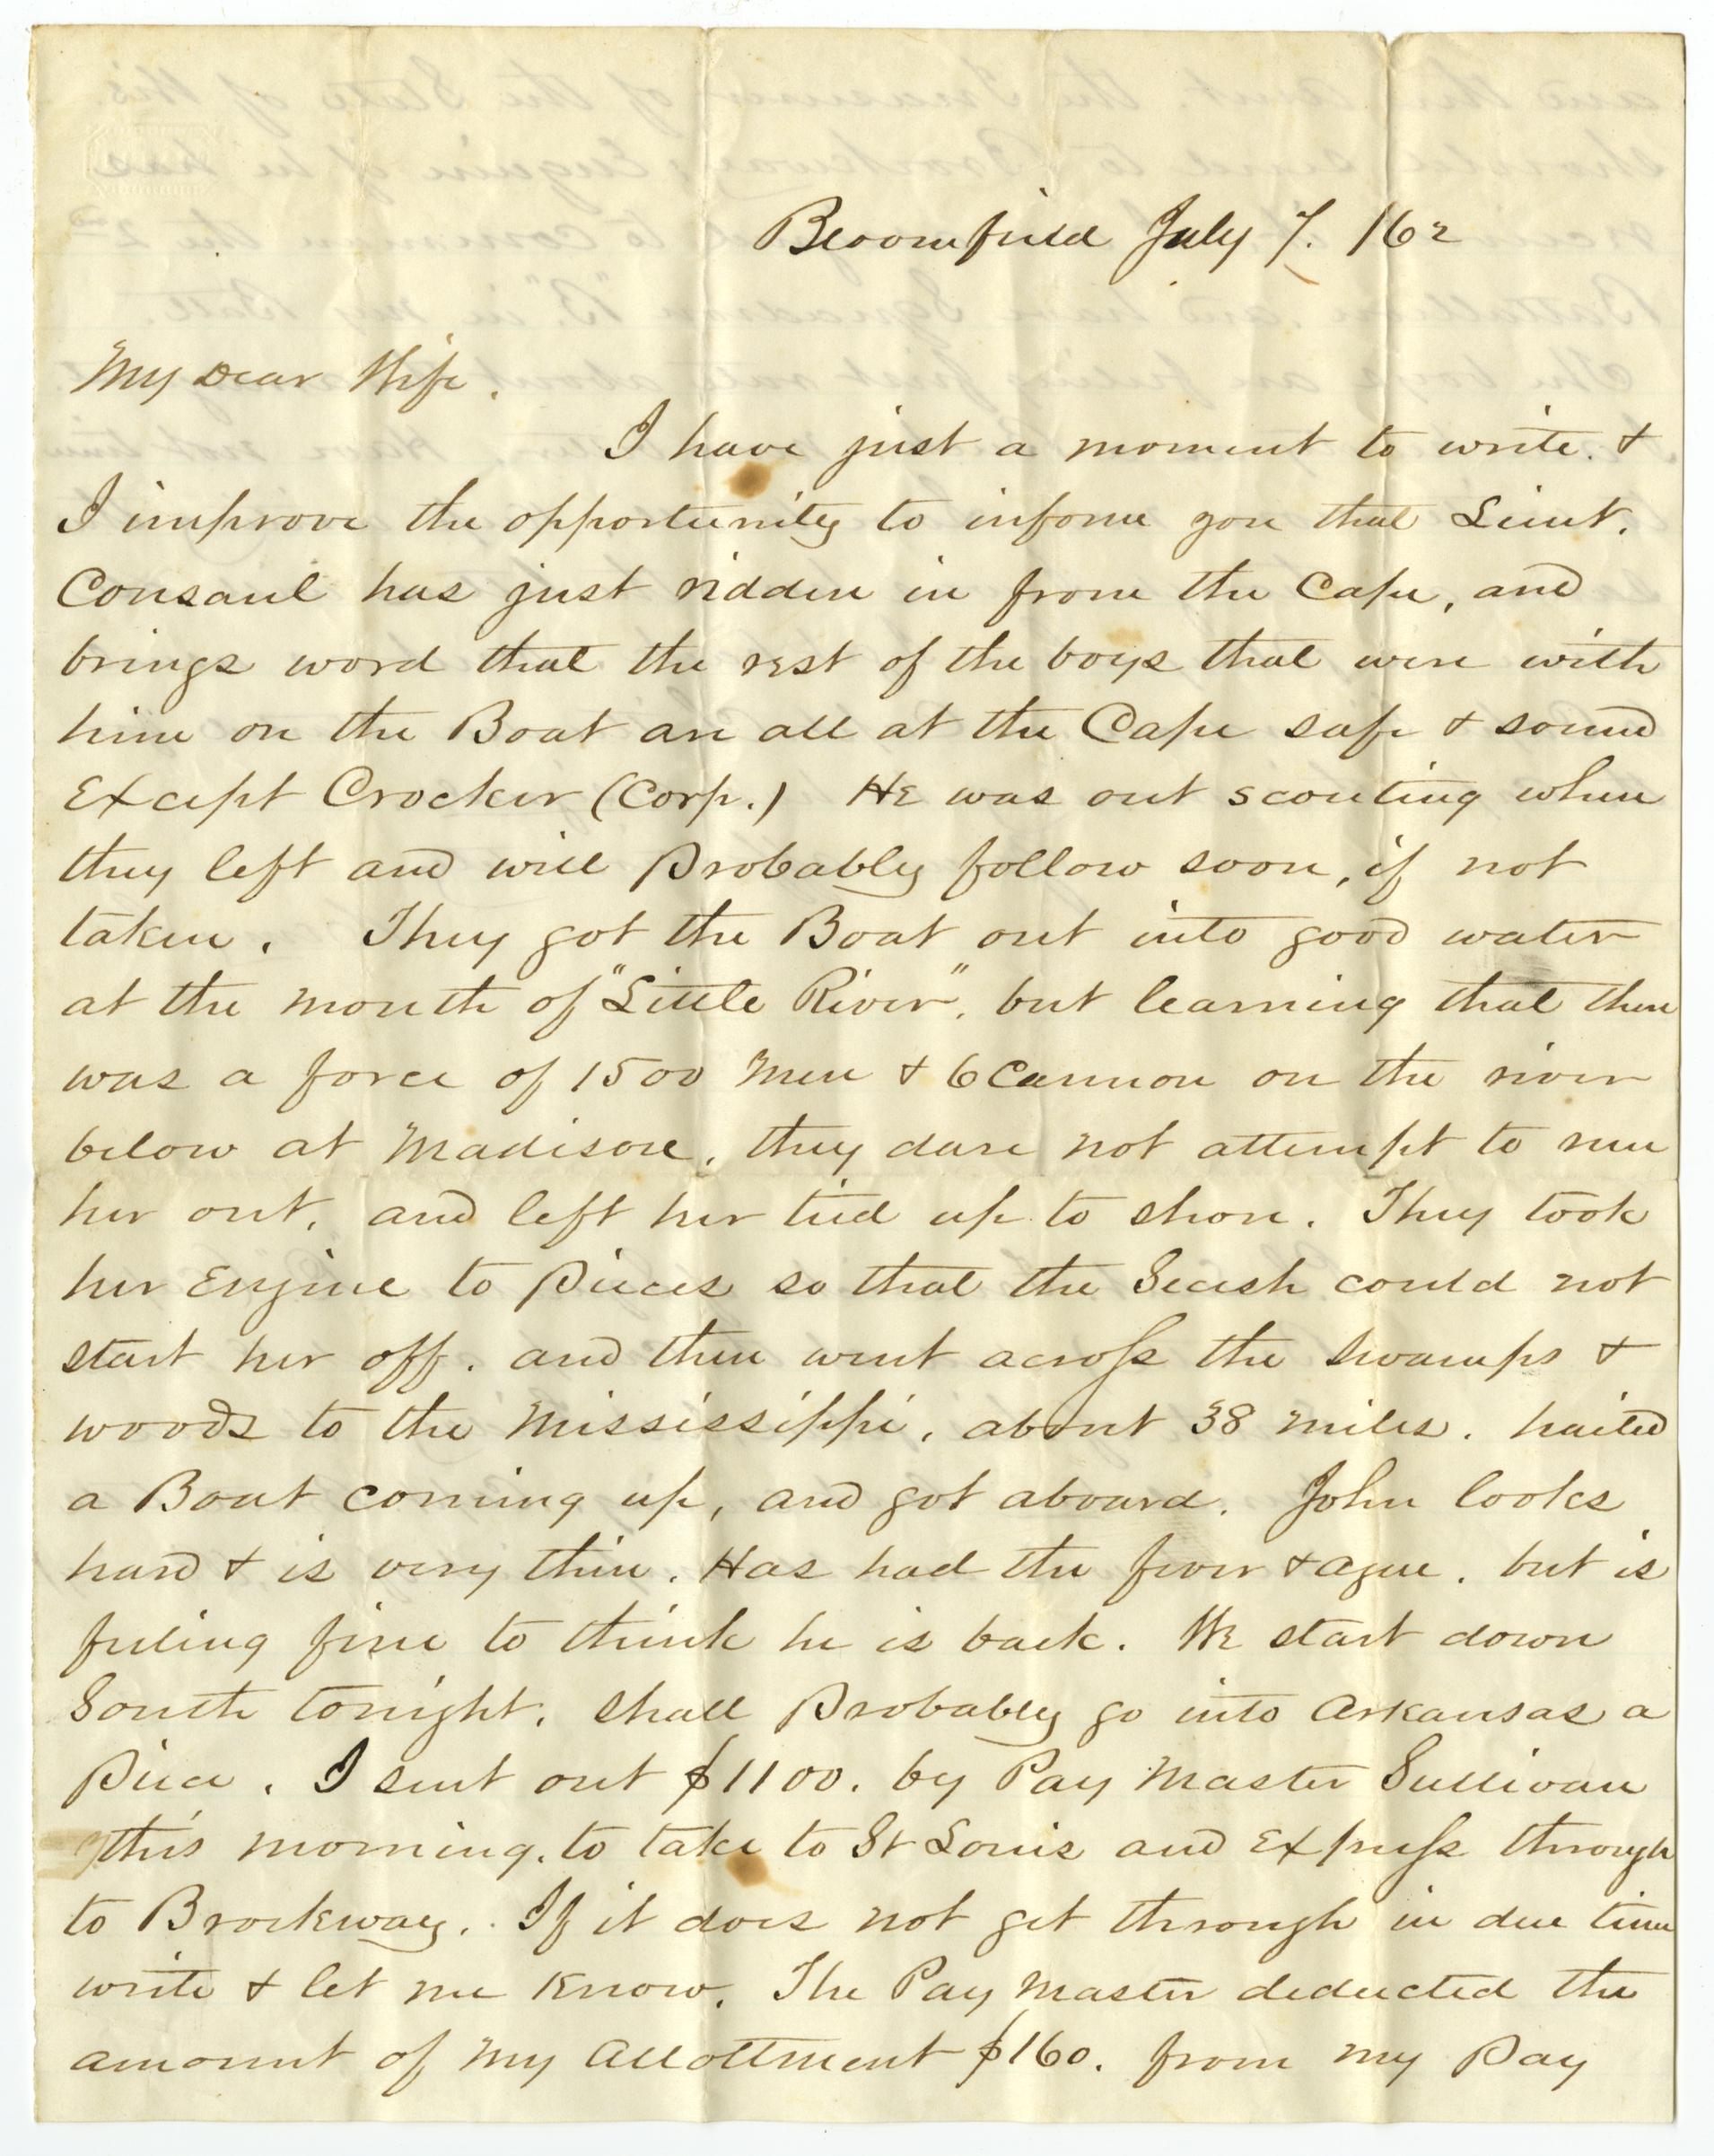 Bloomfield July 7. /62
My Dear Wife.
I have just a moment to write. &
I improve the opportunity to inform you that Lieut.
Consaul has just ridden in from the Cape, and
brings word that the rest of the boys that were with
him on the Boat are all at the Cape safe & sound
Except Crocker (Corp.) He was out scouting when
they left and will Probably follow soon, if not
taken. They got the Boat out into good water
at the mouth of "Little River", but learning that there
was a force of 1500 Men & 6 Cannon on the river
below at Madison, they dare not attempt to run
her out, and left her tied up to shore. They took
her Engine to Pieces so that the Secesh could not
start her off. and then went across the swamps &
woods to the Mississippi, about 38 miles. hailed
a Boat coming up, and got aboard. John looks
hard & is very thin. Has had the fever & ague. but is
feeling fine to think he is back. We start down
South tonight. shall Probably go into Arkansas a
Piece. I sent out $1100. by Pay Master Sullivan
this morning. to take to St Louis and Express through
to Brockway. If it does not get through in due time
write & let me Know. The Pay Master deducted the
amount of My Allottment $160. from my Pay